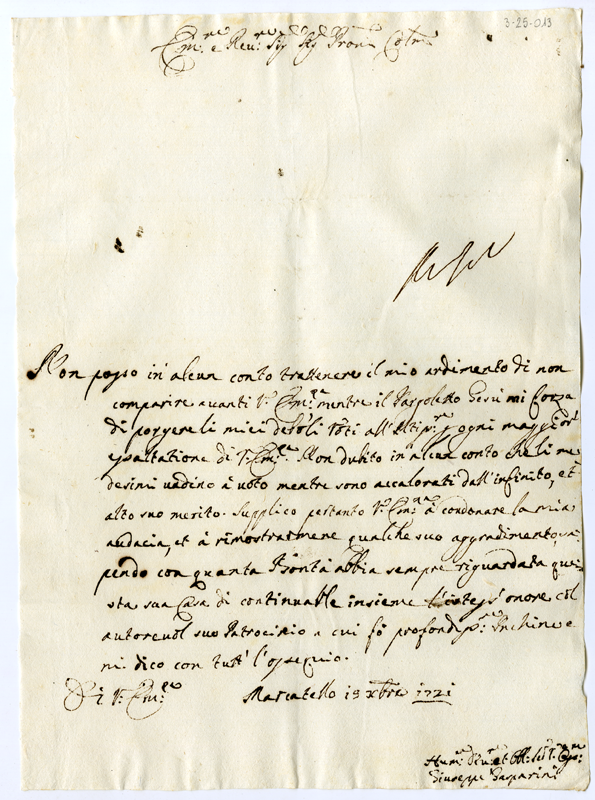 3-25-013
Em.mo e Rev.mo Sig.r Sig.r Pron Col.mo
Non posso in alcun conto trattenere il mio ardimento di non
comparire avanti V.a Em.za mentre il Pargoletto Gesù mi forza
di porgere li miei deboli Voti all'Altis.mo ogni maggior
esaltatione di V. Em.za Non dubito in alcun conto che li me
desimi vadino à voto mentre sono accalorati dall'infinito, et
alto suo merito. Supplico pertanto V.a Em.za à condonare la mia
audacia, et à rimostrarmene qualche suo aggradimento, sa
pendo con quanta Bontà abbia sempre riguardata que
sta sua Casa di continuable insieme onore col
autorevol suo Patrocinio a cui fò profondis.mo Inchino e
mi dico con tutt'l'ossequio.
Di V. Em.za Marcatello 13 Xbre 1721
Hum.mo Dev.mo et Obl.
Giuseppe Gasparini